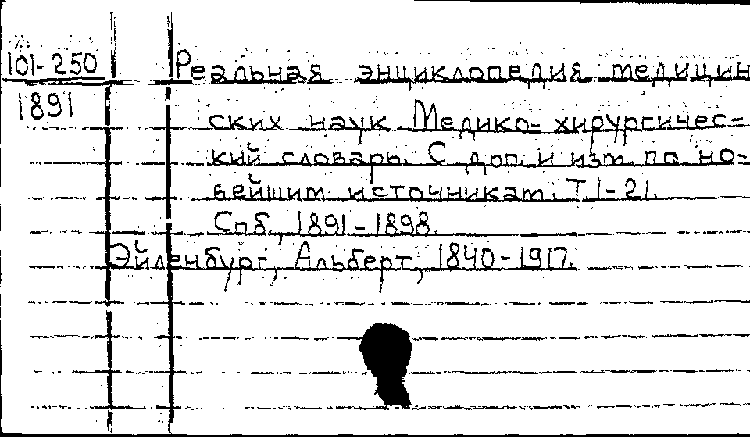 101-250 Реальная энциклопедия медицин
1891
ских наук Медико-хирургичес-
кий словарь. С доп. и изм. по но-
вейшим источникам. Т.1-21.
Спб., 1891-1898.
Эйленбург, Альберт, 1840-1917.